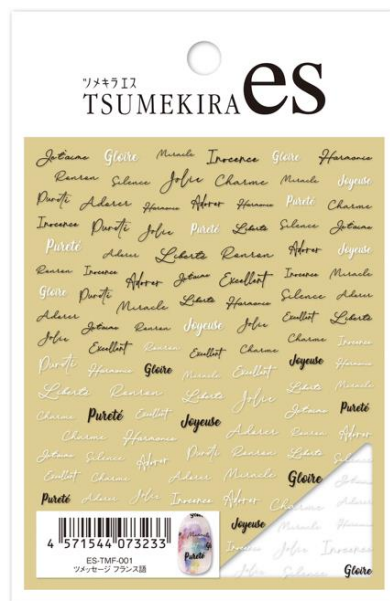 ツメキラエス
TSUMEKIRA es
Jetaime Gloire Miracle Inocence Gloire Harmonie
Ronron Silence Jolie Charme Miracle Joyeuse
Pureti Adorer Harmonie Adorer Harmonie Pureté Charme
Inocence Pureti Jolie Pureté Liberte Silence Jetaime
Pureté Adorer Liberte Ronron Adorer Joyeuse
Ronron Inocence Adorer Jetaime Excellent Inocence Miracle
Gloire Pureti Miracle Liberte Harmonie Silence Adorer
Adorer Jetaime Ronron Joyeuse Jolie Excellent Liberte
Jolie Excellent Ronron Excellent Charme Inocence
Pureti Harmonie Gloire Miracle Excellent Joyeuse Harmonie
Liberte Ronron Liberte Jolie Liberte Miracle
Charme Pureté Excellent Joyeuse Jetaime Pureté
Charme Harmonie Adorer Ronron Adorer
Jetaime Silence Adorer Pureti Ronron Liberte
Excellent Charme Adorer Miracle Gloire
Pureté Adorer Jolie Inocence Adorer Charme
Joyeuse Miracle
Inocence Jolie Inocence
Gloire
4 571544 073233
Pureté
ES-TMF-001
ツメッセージ フランス語